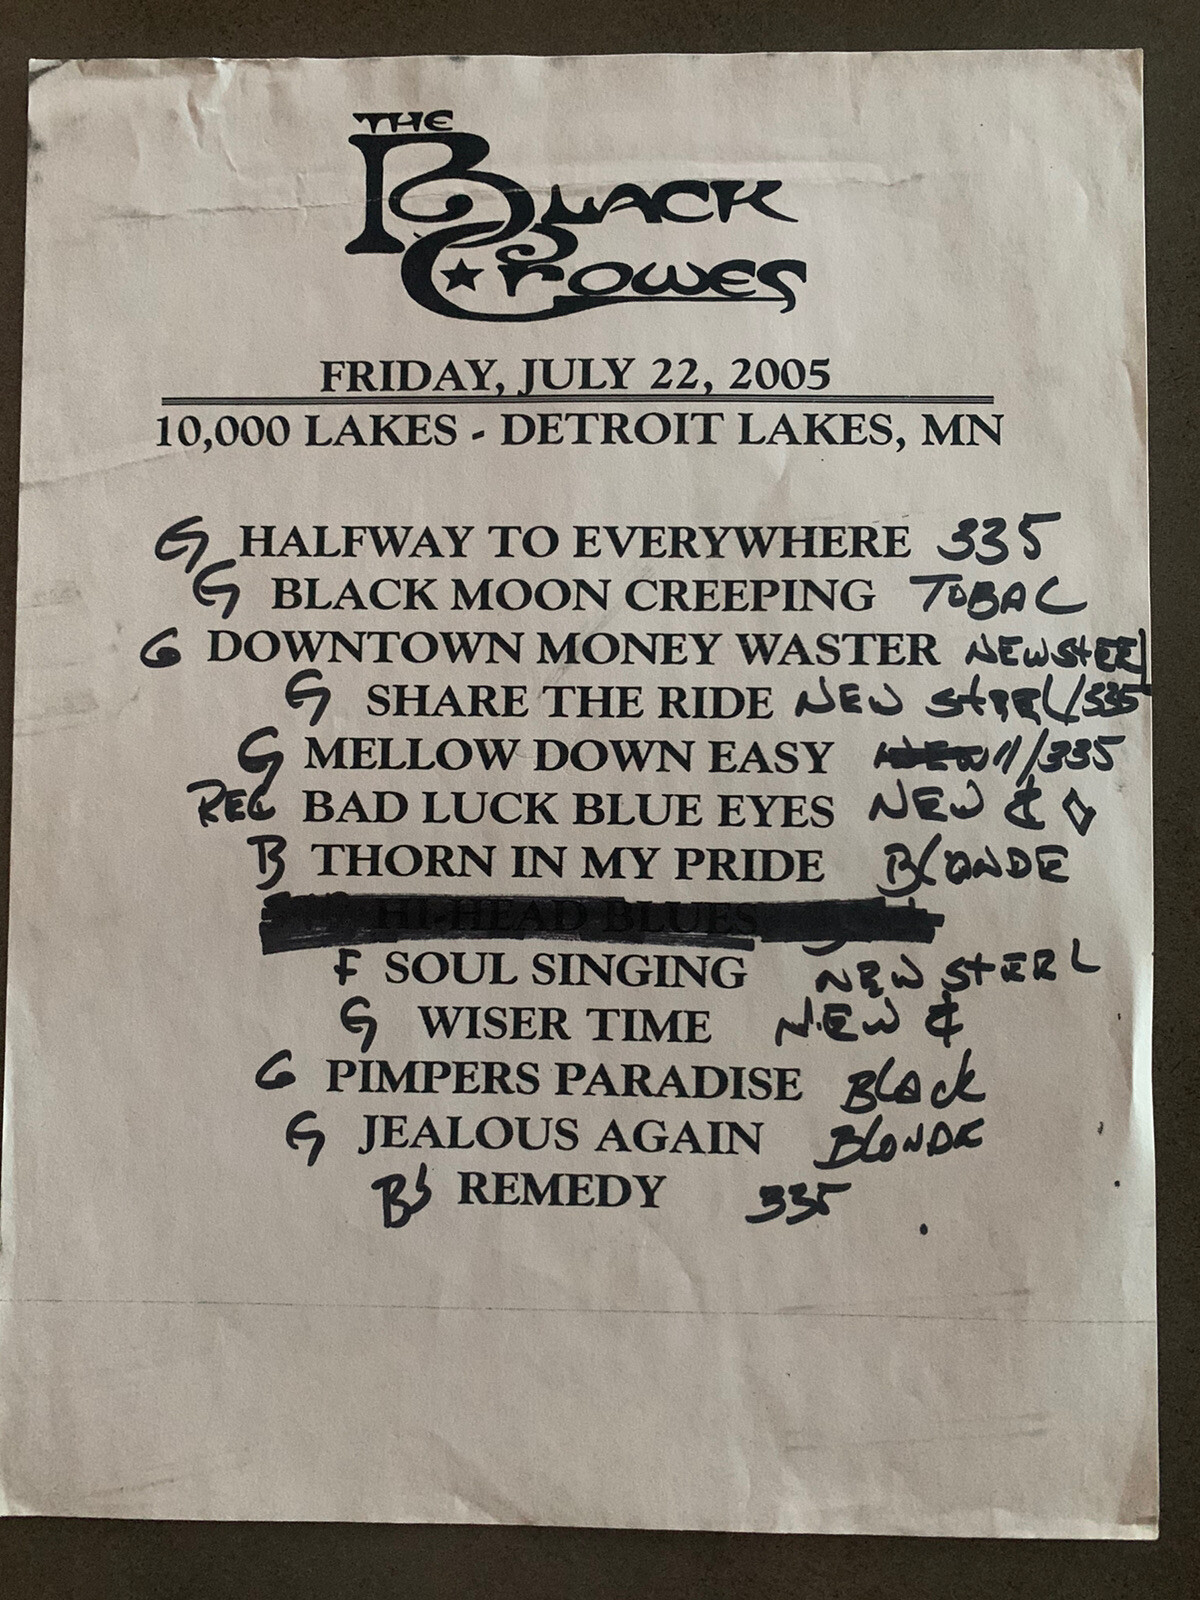 THE
BLACK
CROWES
FRIDAY, JULY 22, 2005
10,000 LAKES - DETROIT LAKES, MN
G HALFWAY TO EVERYWHERE 335
G BLACK MOON CREEPING TOBAC
G DOWNTOWN MONEY WASTER NEW STEEL
G SHARE THE RIDE NEW STEEL/335
G MELLOW DOWN EASY NEW 11/335
REG BAD LUCK BLUE EYES NEW ¢ ◇
B THORN IN MY PRIDE BLONDE
HI-HEAD BLUES
F SOUL SINGING NEW STEEL
G WISER TIME NEW ¢
G PIMPERS PARADISE BLACK
G JEALOUS AGAIN BLONDE
B' REMEDY 335